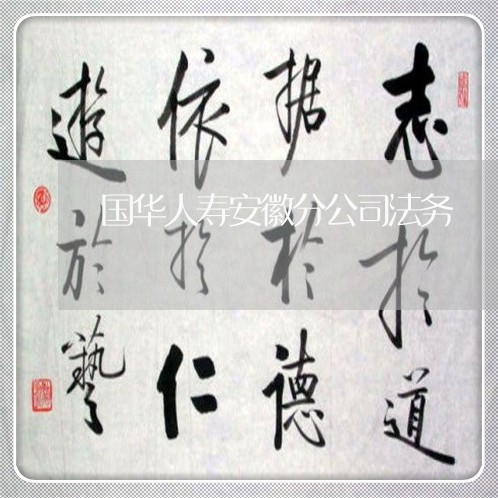 志於道
据於德
依於仁
遊於藝
国华人寿安徽分公司法务